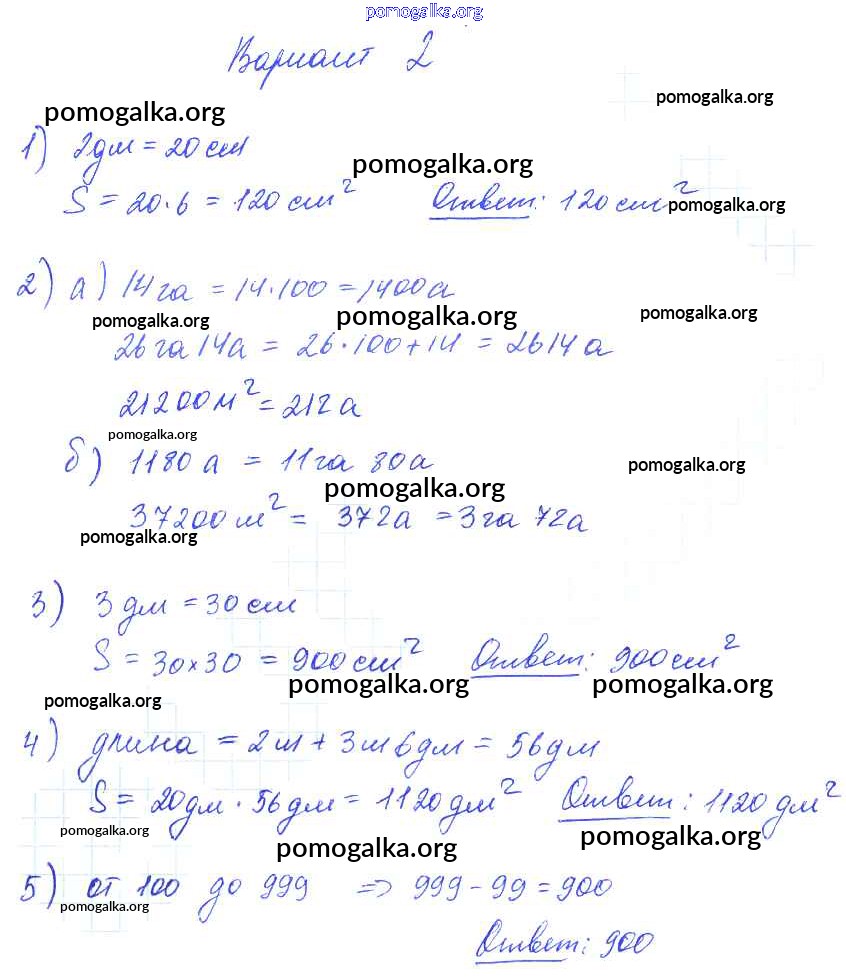 pomogalka.org
Вариант 2
pomogalka.org
pomogalka.org
1) 2дм = 20 см
pomogalka.org
S = 20·6 = 120 см² Ответ: 120 см²
pomogalka.org
2) а) 14 га = 14·100 = 1400 а
pomogalka.org pomogalka.org pomogalka.org
26 га 14а = 26·100+14 = 2614 а
21200 м² = 212 а
pomogalka.org
б) 1180 а = 11 га 80 а
pomogalka.org
pomogalka.org
37200 м² = 372а = 3 га 72а
pomogalka.org
3) 3 дм = 30 см
S = 30×30 = 900 см² Ответ: 900 см²
pomogalka.org pomogalka.org
pomogalka.org
4) длина = 2 м + 3 м 6 дм = 56 дм
S = 20дм · 56 дм = 1120 дм² Ответ: 1120 дм²
pomogalka.org pomogalka.org
pomogalka.org
5) от 100 до 999 => 999 - 99 = 900
pomogalka.org
Ответ: 900